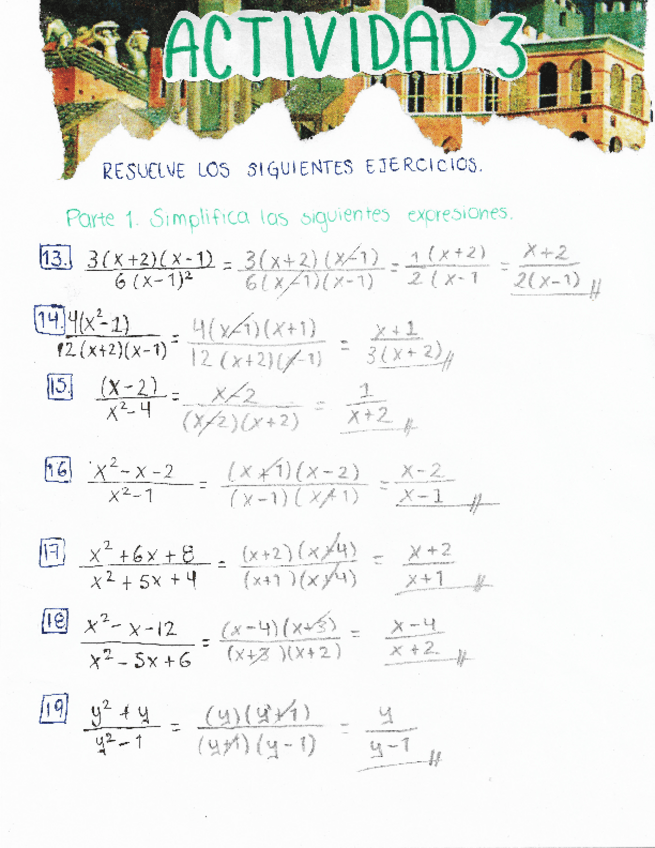 ACTIVIDAD 3
RESUELVE LOS SIGUIENTES EJERCICIOS.
Parte 1. Simplifica las siguientes expresiones.
13. 3(x+2)(x-1)/6(x-1)² = 3(x+2)(x-1)/6(x-1)(x-1) = 1(x+2)/2(x-1 = x+2/2(x-1)
14. 4(x²-1)/12(x+2)(x-1) = 4(x-1)(x+1)/12(x+2)(x-1) = x+1/3(x+2)
15. (x-2)/x²-4 = x-2/(x-2)(x+2) = 1/x+2
16 x²-x-2/x²-1 = (x+1)(x-2)/(x-1)(x+1) = x-2/x-1
17 x²+6x+8/x²+5x+4 = (x+2)(x+4)/(x+1)(x+4) = x+2/x+1
18 x²-x-12/x²-5x+6 = (x-4)(x+3)/(x+3)(x+2) = x-4/x+2
19 y²+y/y²-1 = (y)(y+1)/(y+1)(y-1) = y/y-1